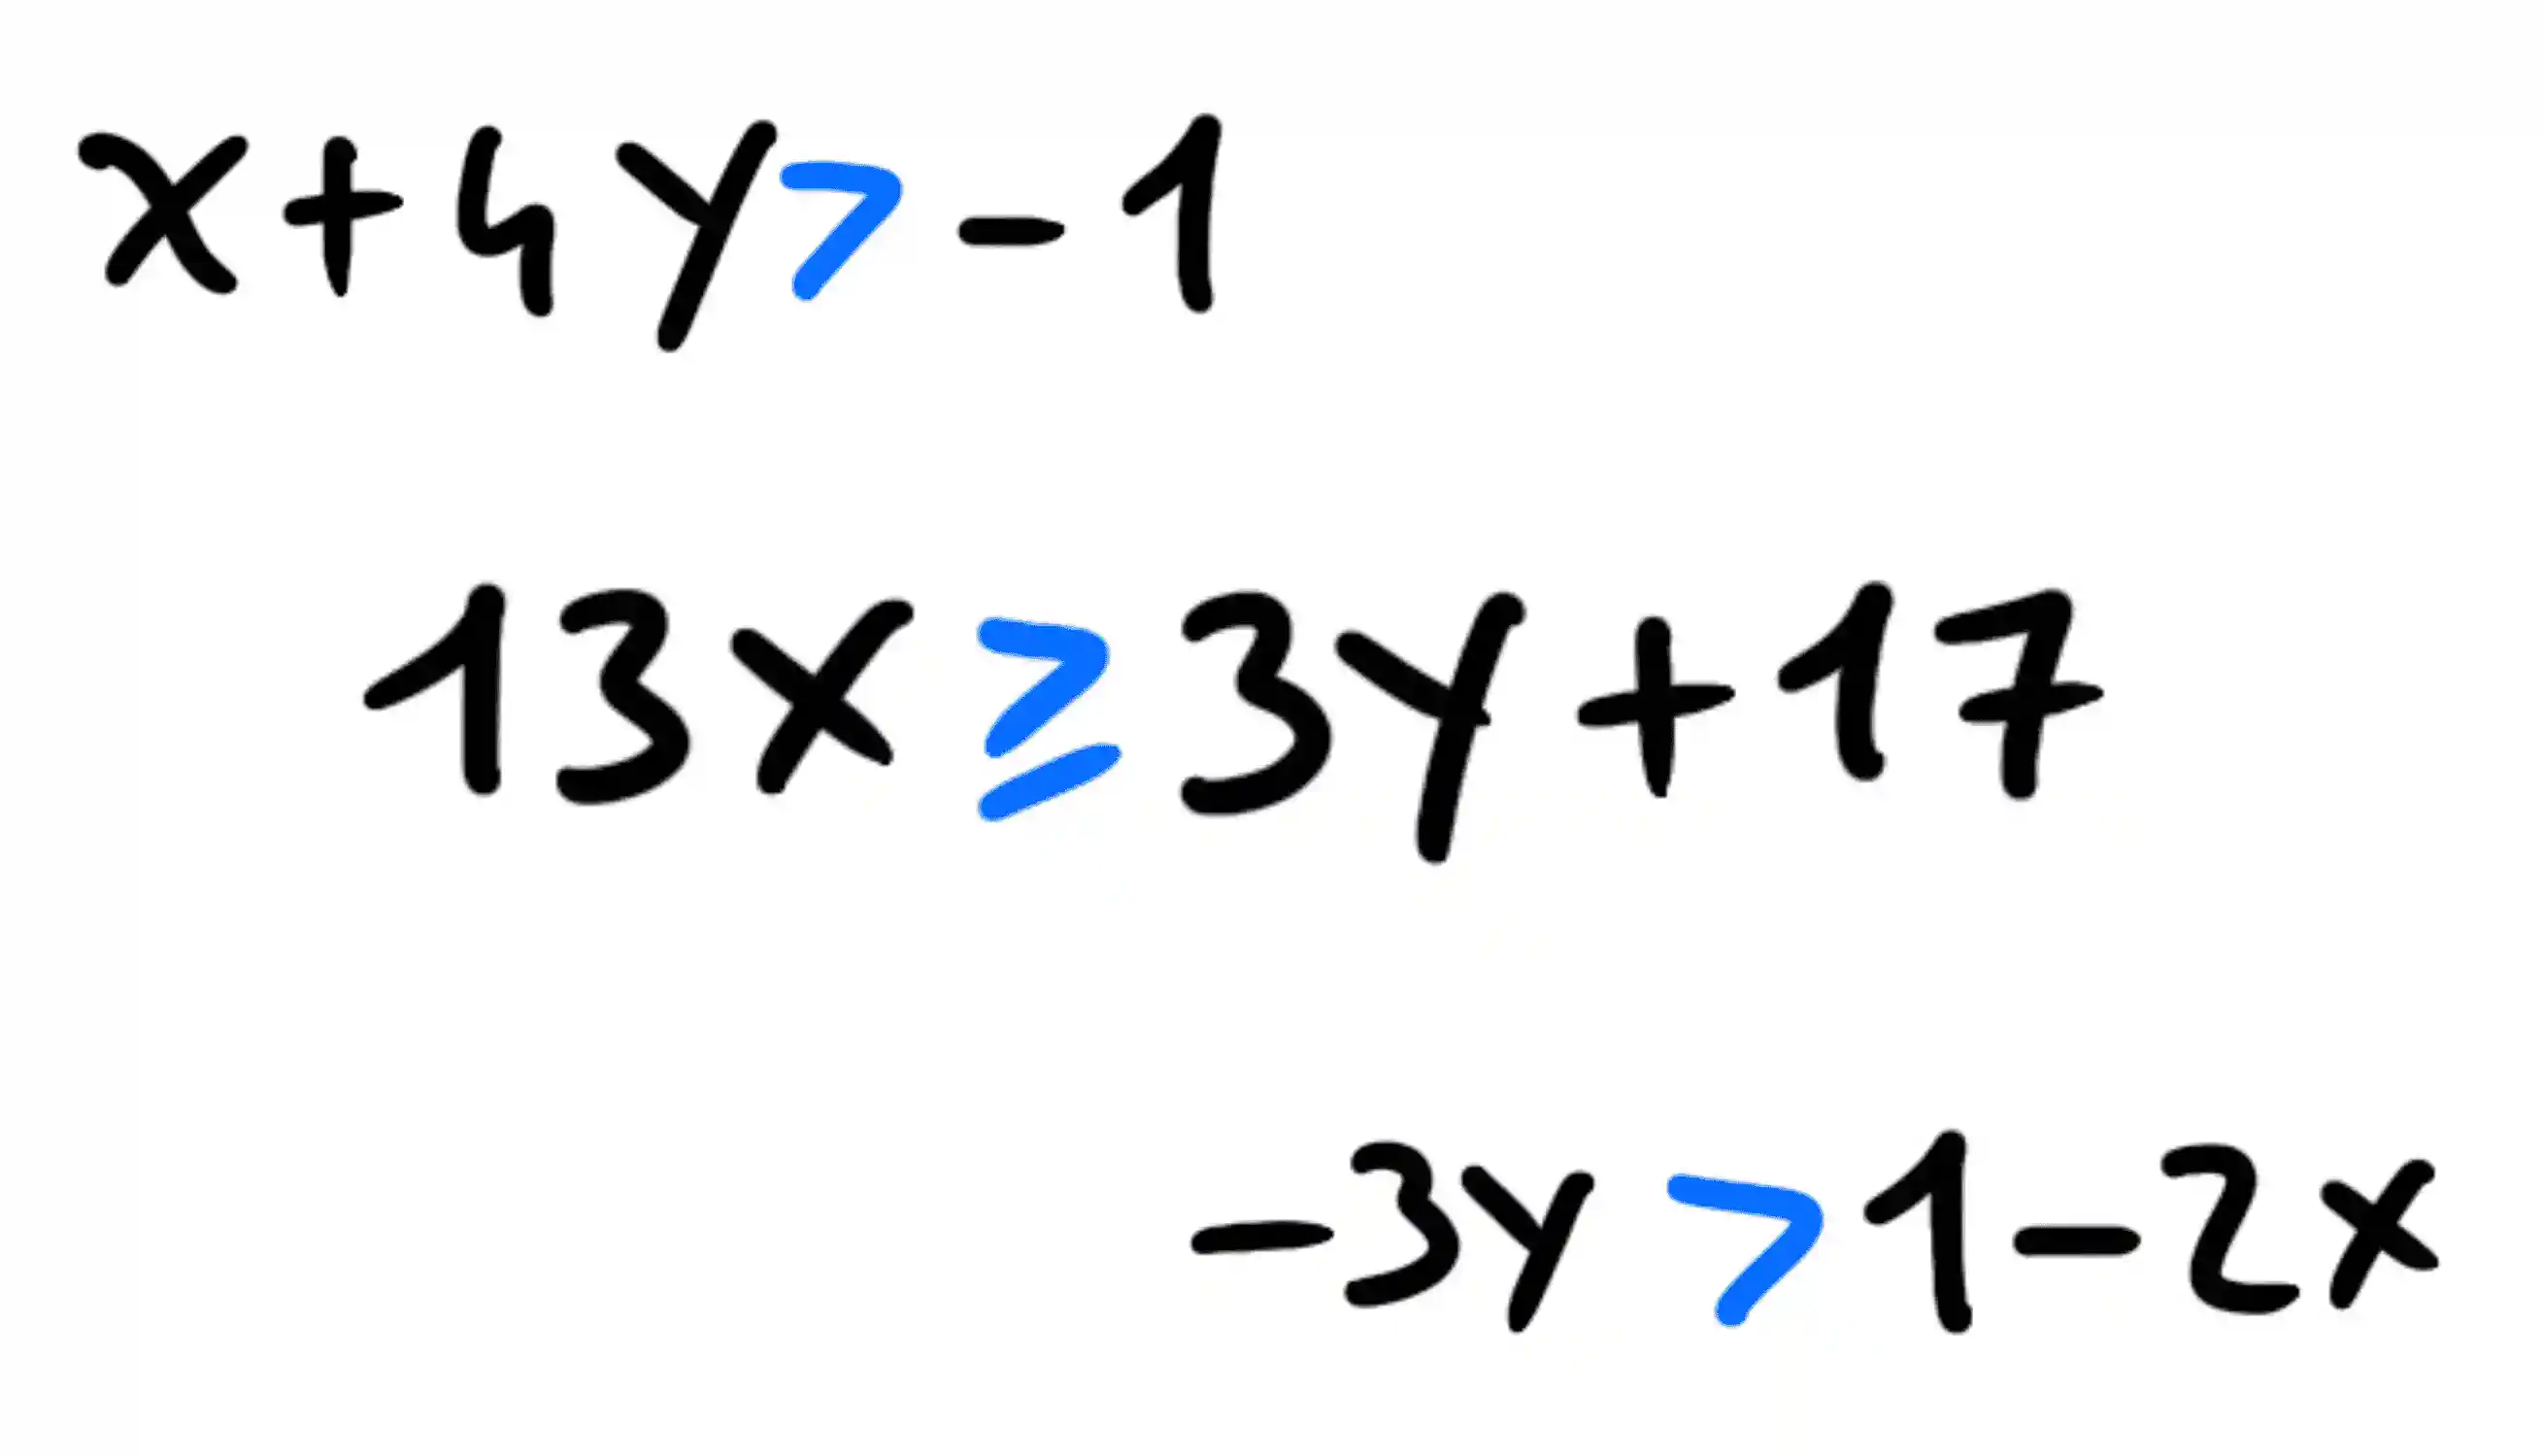 x+4y>-1
13x≥3y+17
-3y>1-2x